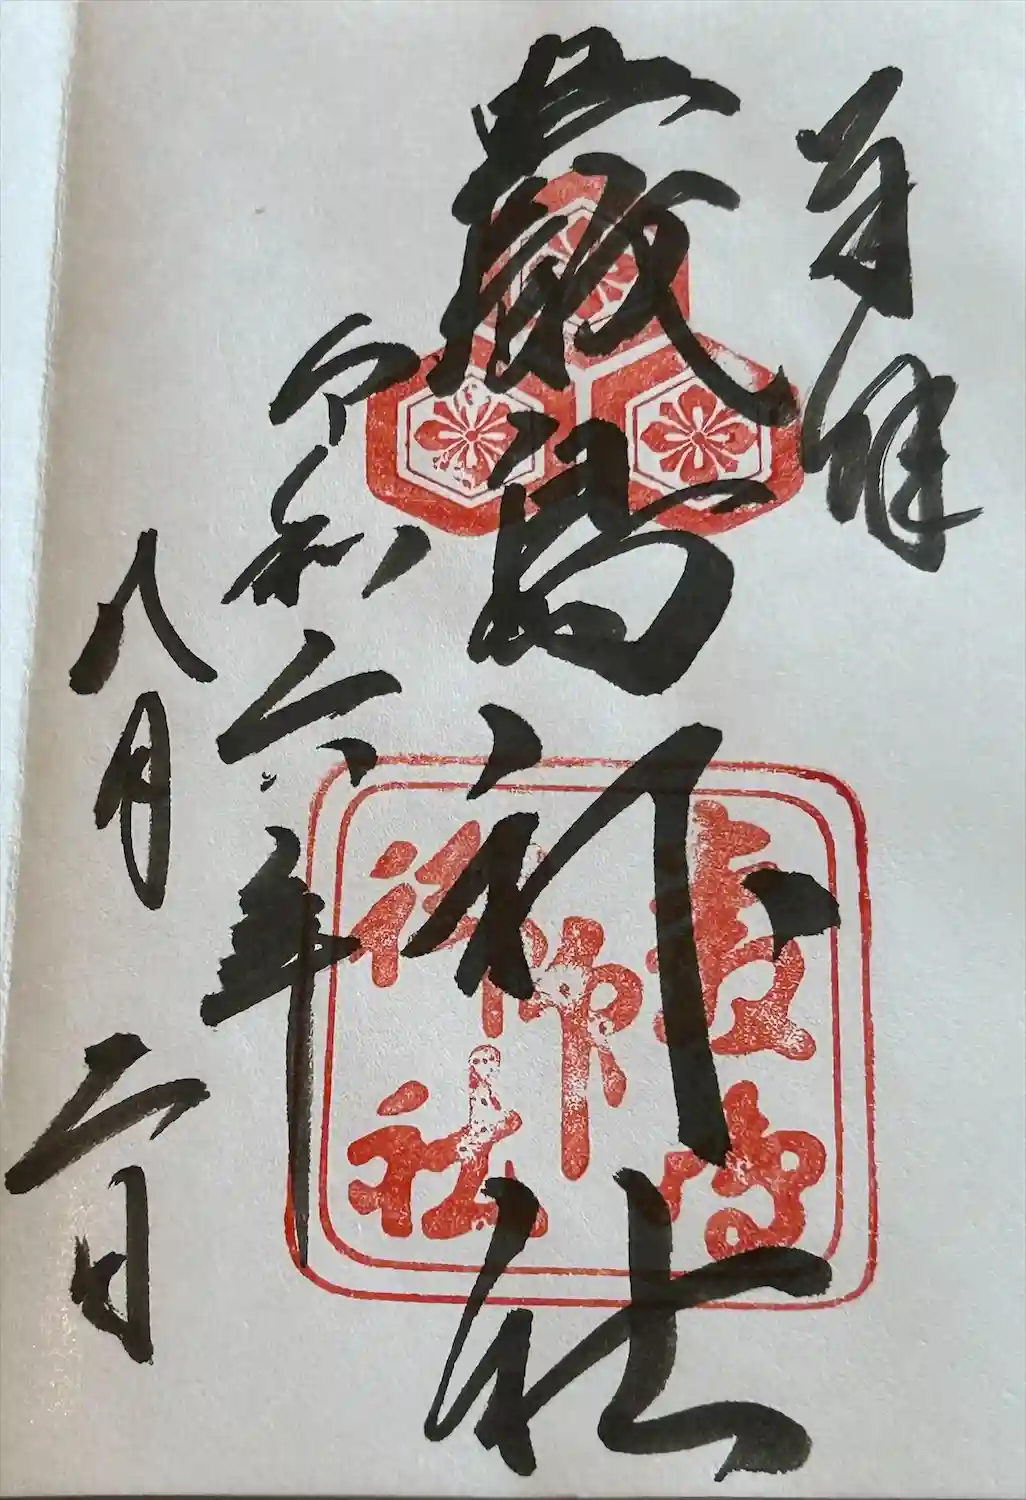 奉拝
嚴島神社
令和六年
八月二日
嚴島
神社